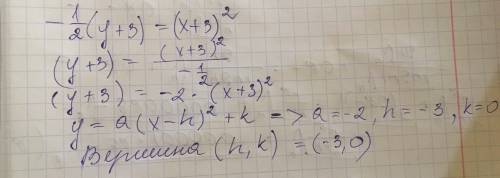 -1/2 (y+3) = (x+3)²
(y+3) = (x+3)² / -1/2
(y+3) = -2 · (x+3)²
y = a(x-h)² + k => a=-2, h=-3, k=0
Вершина (h, k) = (-3,0)